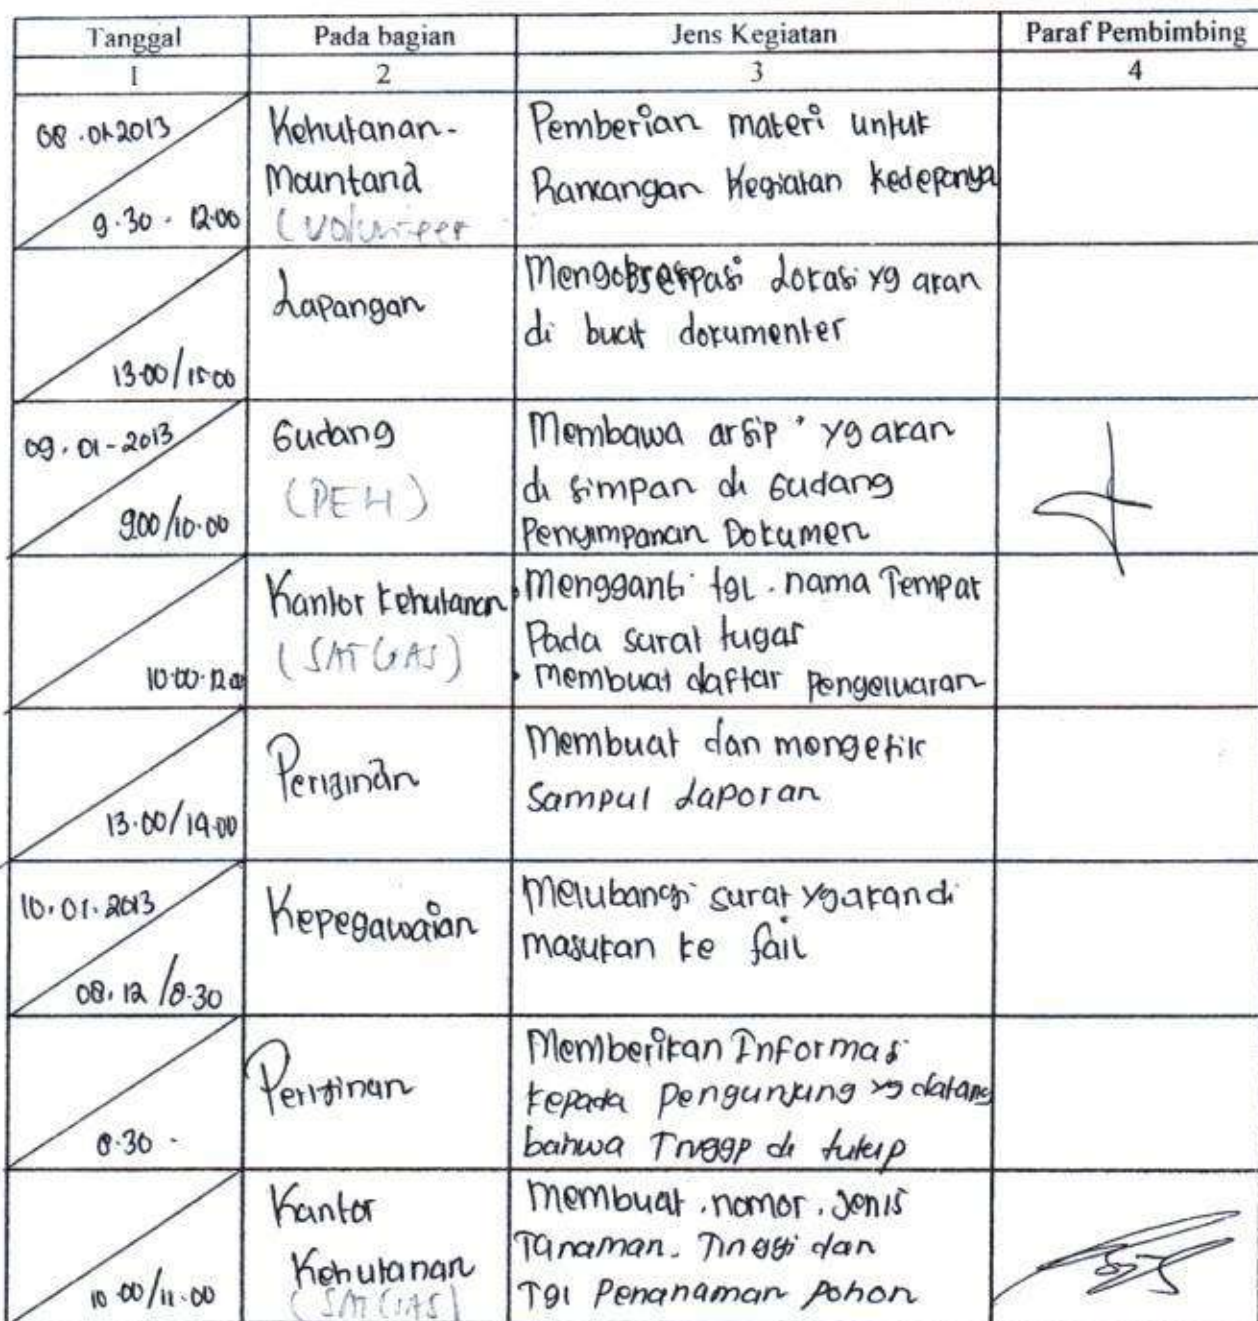 Tanggal
Pada bagian
Jens Kegiatan
Paraf Pembimbing
1
2
3
4
08.01-2013
9.30 - 12.00
Kehutanan-
Mountana
(Volunteer
Pemberian materi untuk
Rancangan Kegiatan kedepanya
13.00/15.00
Lapangan
Mengobserpasi Lokasi yg akan
di buat dokumenter
09.01-2013
9.00/10.00
Gudang
(PEH)
Membawa arsip" yg akan
di simpan di Gudang
Penyimpanan Dokumen
10.00-12.00
Kantor Kehutanan
(SATGAS)
• Mengganti tgl. nama Tempat
Pada surat tugas
• Membuat daftar pengeluaran
13.00/14.00
Periginan
Membuat dan mengetik
Sampul Laporan
10.01.2013
08.12/8.30
Kepegawaian
Melubangi surat yg akan di
masukan ke fail
8.30 -
Periginan
Memberikan Informasi
kepada pengunjung yg datang
bahwa Tnggp di tutup
10.00/11.00
Kantor
Kehutanan
(SATGAS)
Membuat . nomor . Jenis
Tanaman. Tinggi dan
Tgl Penanaman pohon